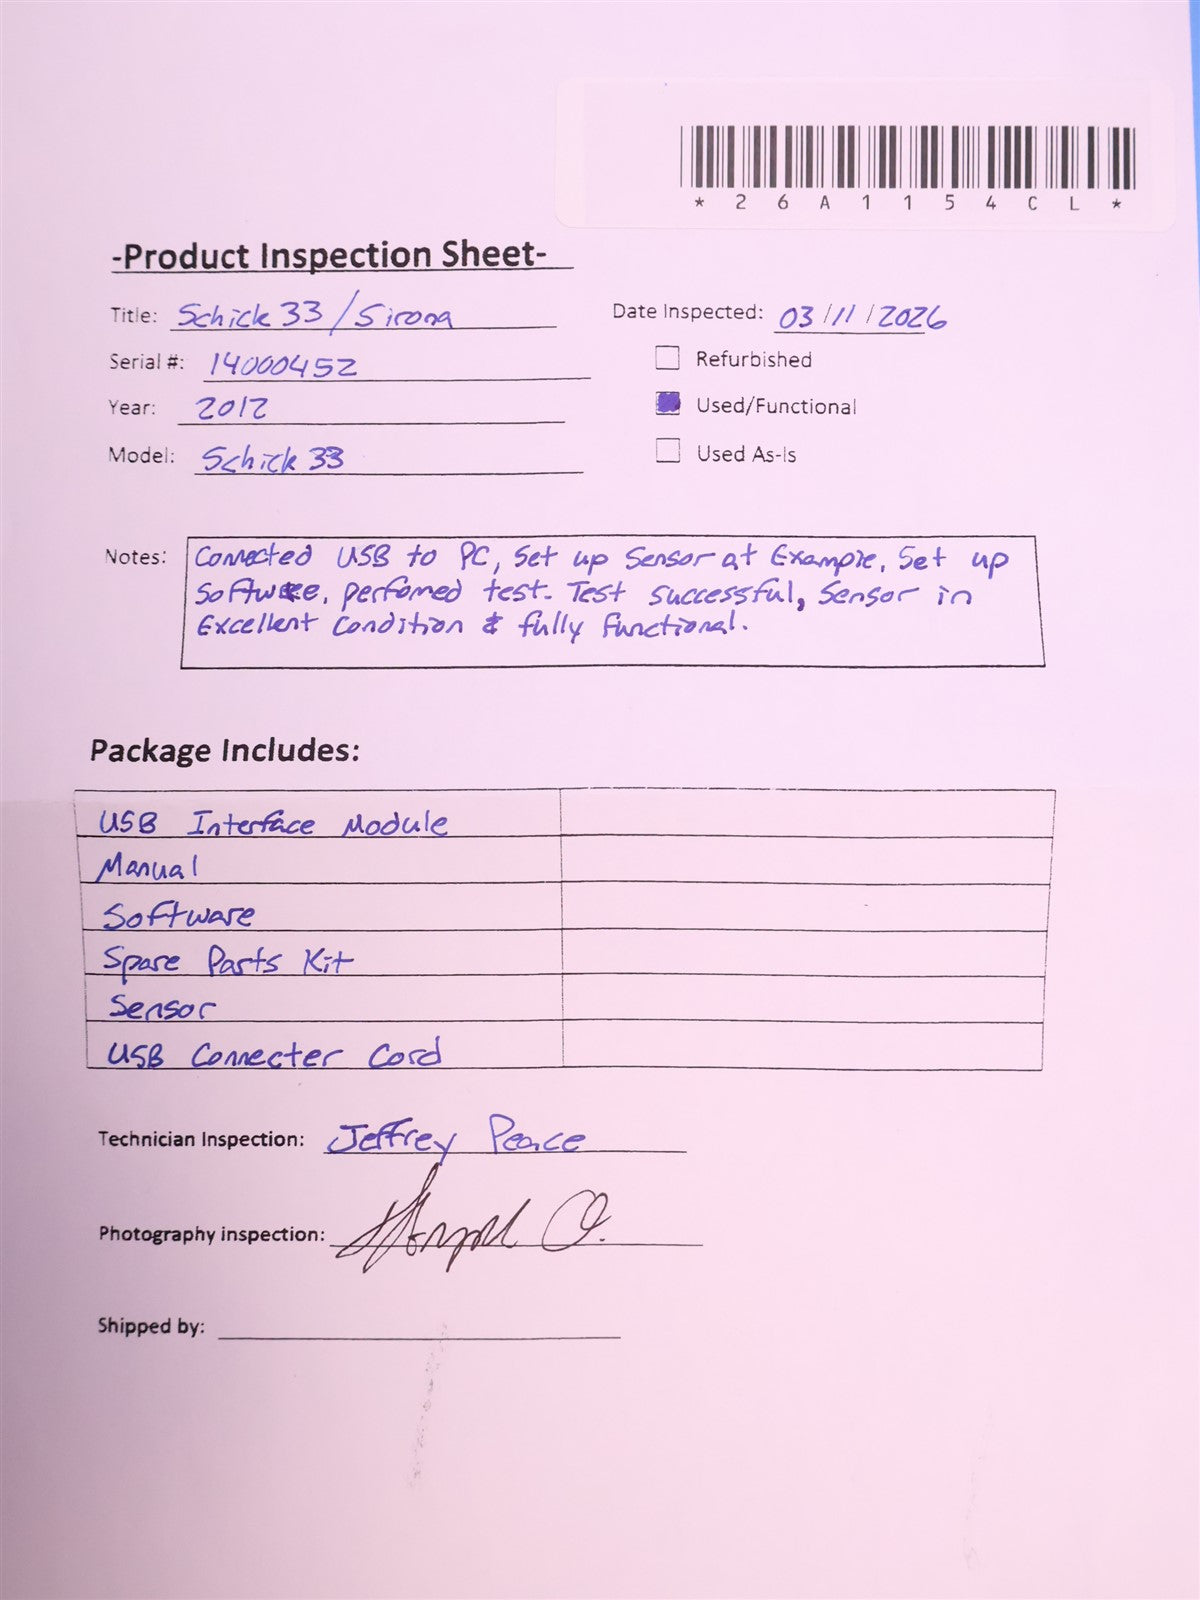 *26A1154CL*
-Product Inspection Sheet-
Title: Schick 33 / Sirona
Date Inspected: 03/11/2026
Serial #: 14000452
Refurbished
Year: 2012
Used/Functional
Model: Schick 33
Used As-Is
Notes: Connected USB to PC, Set up Sensor at Example, Set up
Software, perfomed test. Test successful, Sensor in
Excellent Condition & fully functional.
Package Includes:
USB Interface Module
Manual
Software
Spare Parts Kit
Sensor
USB Connecter Cord
Technician Inspection: Jeffrey Peace
Photography inspection: O.
Shipped by: